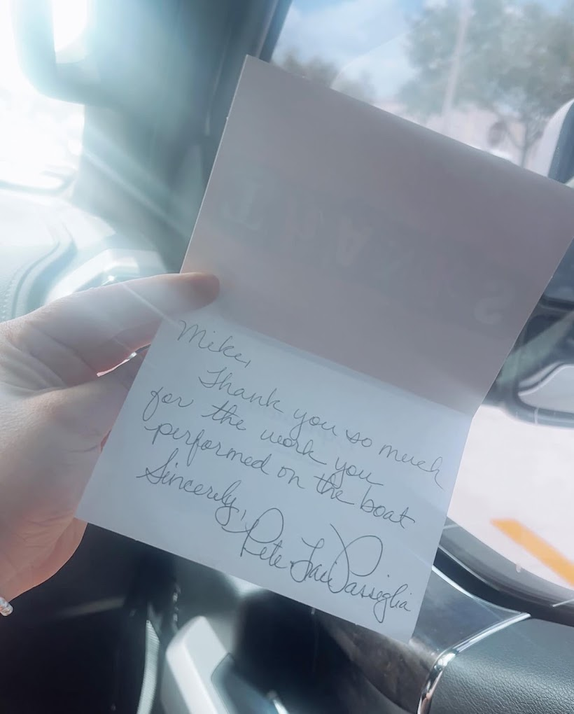 THANKS
Mike,
Thank you so much
for the work you
performed on the boat
Sincerely,
Pete